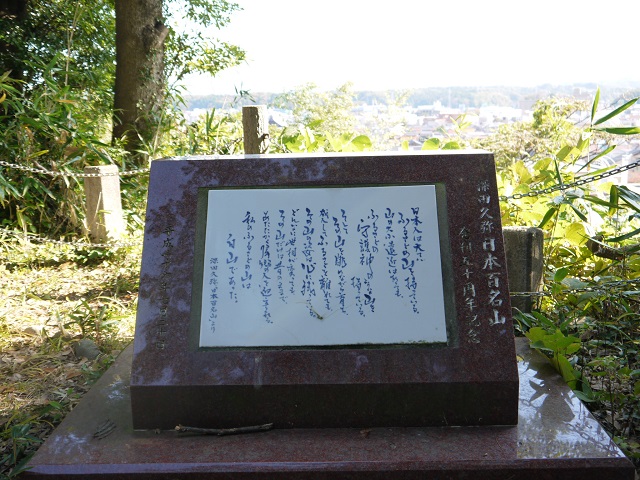 深田久弥日本百名山
十周年記念
日本人は大てい
ふるさとの山を持っている。
山の大小遠近はあっても
ふるさとの
守護神のような山を
持っている。
そしてその山を眺めながら育ち
成人してふるさとを離れても
その山の姿は心に残っている。
どんなに世相が変っても
その山だけは昔のままで
あたたかく帰郷の人を迎えてくれる。
私のふるさとの山は
白山であった。
深田久弥 日本百名山より